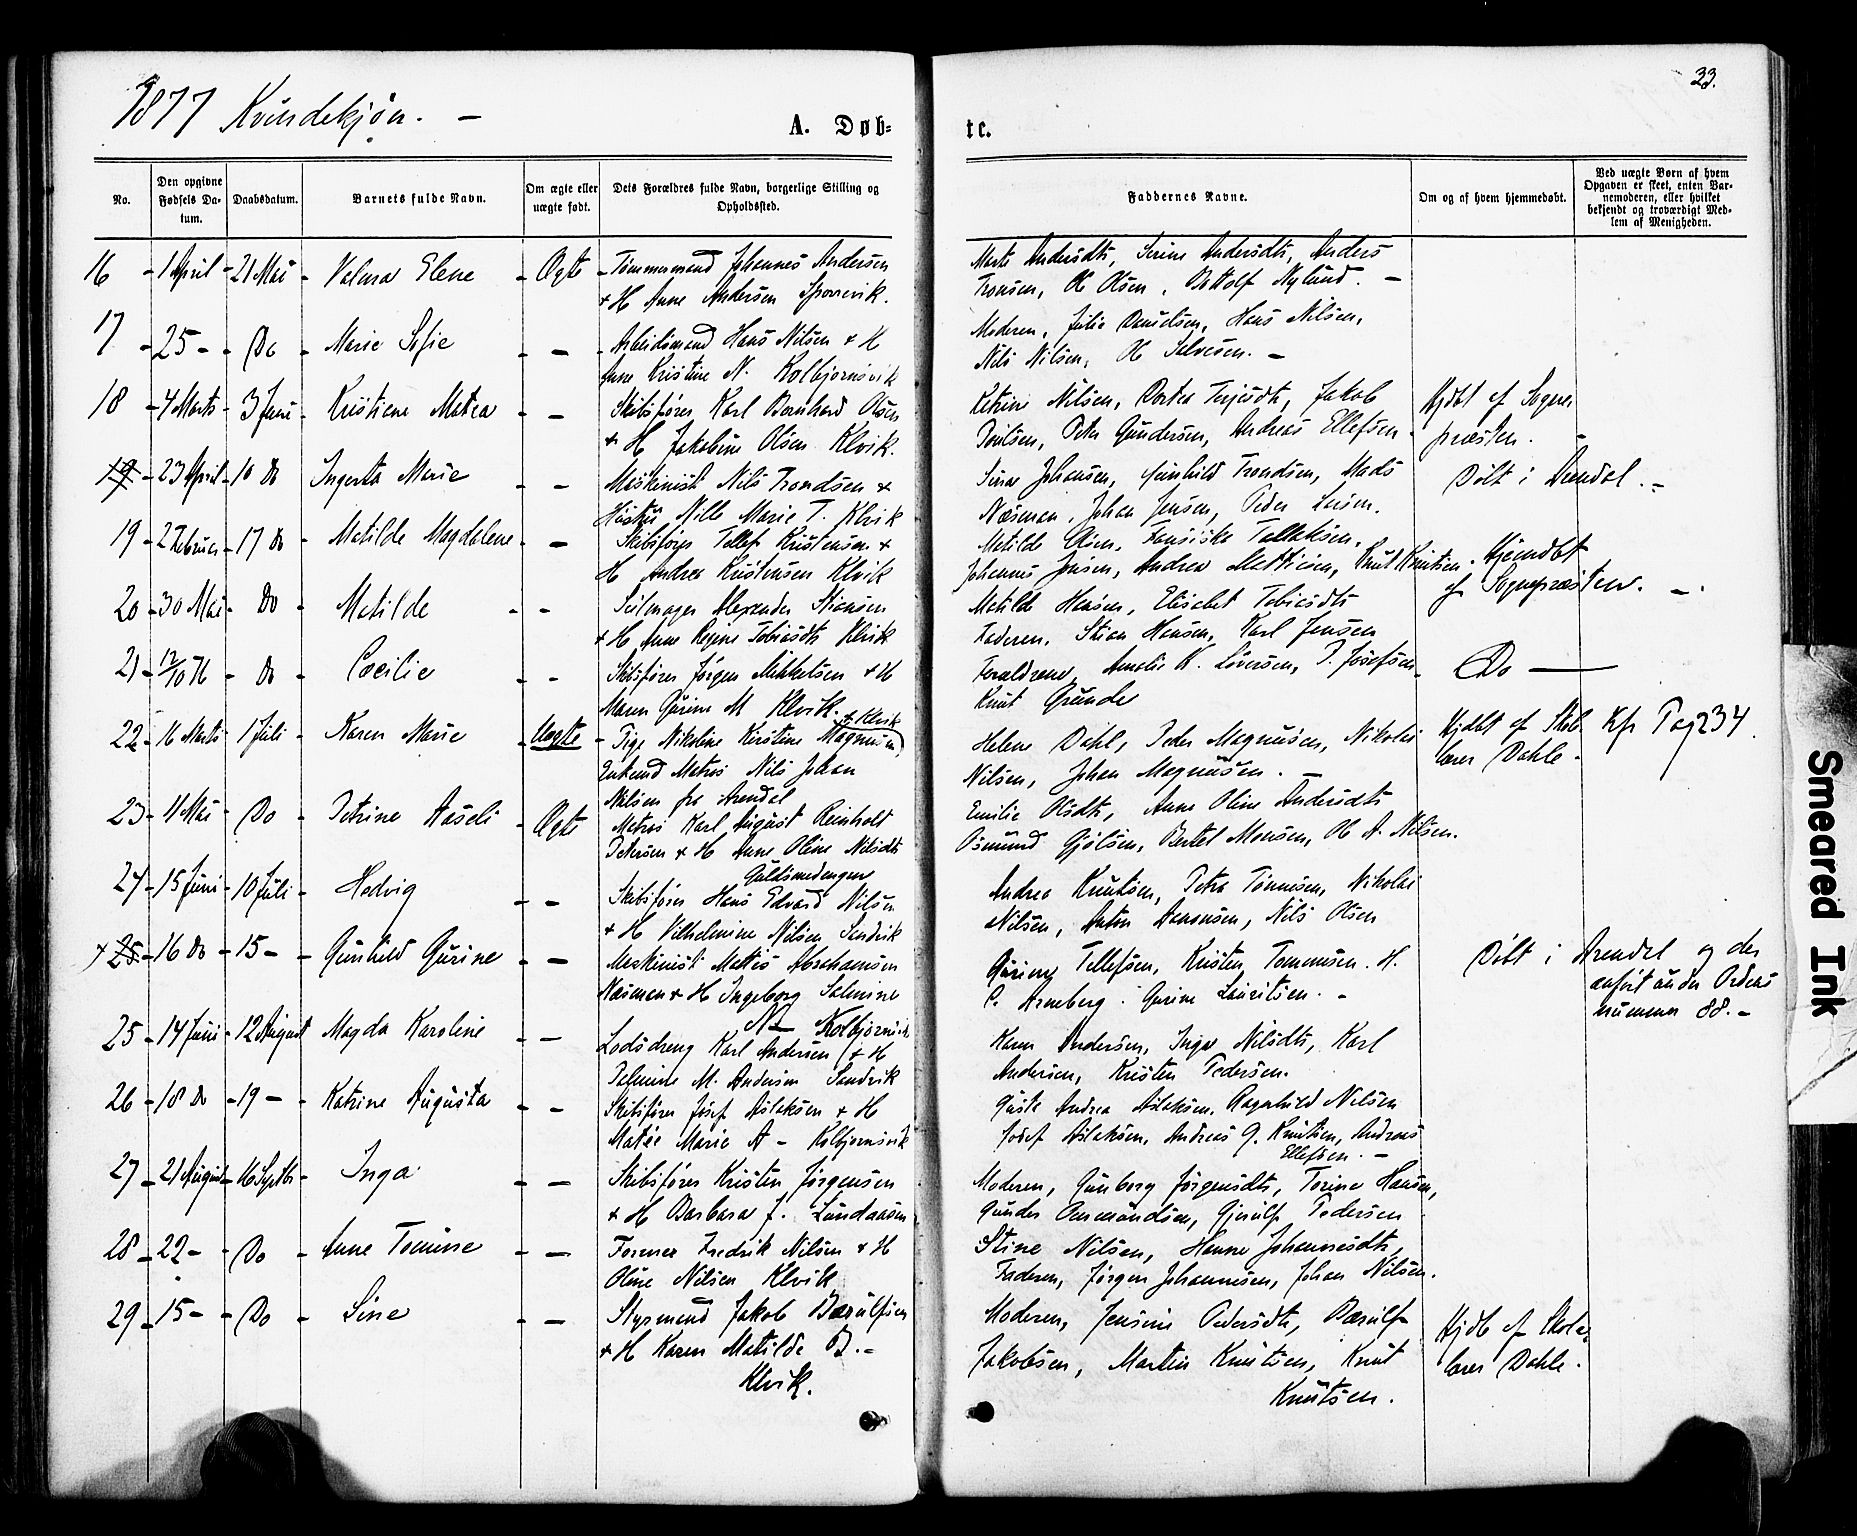 1877 Kvindekjøn. —
A. Døb=
te.
33.
No.
Den opgivne Fødsels Da-tum.
Daabsdatum.
Barnets fulde Navn.
Om ægte eller uægte født.
Dets Forældres fulde Navn, borgerlige Stilling og Opholdssted.
Faddernes Navne.
Om og af hvem hjemmedøbt.
Ved uægte Børn af hvem Opgaven er skeet, enten Bar-nemoderen, eller hvilket bekjendt og troværdigt Med-lem af Menigheden.
16 - 1 April - 21 Mai - Valma Elene - Ægte - Tømmermand Johannes Andersen
+ H Anne Andersen
Marte Andersdtr, Serine Andersdtr, Anders
Tronsen, Ol Olsen, Nylund. —
17 - 25 - - Do - Marie Sofie - — - Arbeidsmand Hans Nilsen + H
Anne Kristine N. Kolbjørnsvik
Moderen, Julie Danielsen, Hans Nilsen,
Nils Nilsen, Ol —
18 - 4 Marts - 3 Juni - Kristiane Matea - — Skibsfører Karl Bernhard Olsen
+ H Jakobine Olsen Klvik.
Nilsen, Dortea Terjesdtr, Jakob
Poulsen, Peter Gundersen, Andreas Ellefsen
Hjdbt af Sogne-
præsten. -
19 - 23 April - 10 Do Ingerta Marie - — Maskinist Nils Trondsen +
Hustru Nille Marie T. Klvik
Johansen, Gunhild Trondsen, Mads
Næsman, Johan Jensen, Peder Larsen.
Døbt i Arendal. -
19 - 2 Februar - 17 Do - Matilde Magdalene - — Skibsfører Tellef Kristensen +
H Andrea Kristensen Klvik
Matilde Olsen, Fransiska Tallaksen,
Johannes Jensen, Andrea Mattisen, Knut Knutsen.
Hjemdbt
af Sognepræsten. —
20 - 30 Mai - Do - Matilde - - Seilmager Alexander Stiansen
+ H Anne Regine Tobiasdtr Klvik
Matilde Hansen, Elisabet Tobiasdtr
Faderen, Stian Hansen, Karl Jensen
21 - 12/10 76 - Do - Cecilie - - Skibsfører Jørgen Mikkelsen + H
Maren Gurine M Klvik.
Forældrene, Amalie K. Siversen, P. Josefsen
Knut Grunde
Do —
22 - 16 Marts - 1 Juli - Karen Marie - Uægte - Pige Nikoline Kirstine Magnussen
+ Klvik
Enkemd Matros Nils Johan
Nilsen fra Arendal
Helene Dahl, Peder Magnusen, Nikolai
Nilsen, Johan Magnusen. —
Hjdbt af Skole-
lærer Dahle.
Kfr Pag 234.
23 - 4 Mai - Do - Petrine Aaseli - Ægte Matros Karl August Reinholt
Petersen + H Anne Oline Nilsdtr
Emilie Olsdtr, Anne Oline Andersdtr
Osmund Gjølsen, Bertel Monsen, Ol A. Nilsen.
24 - 15 Juni - 10 Juli - Hedvig - — Skibsfører Hans Edvard Nilsen
Guldsmedengen
+ H Vilhelmine Nilsen Sandvik
Andrea Knutsen, Petra Tønnesen, Nikolai
Nilsen, Anton Aanonsen, Nils Olsen
+ 25 - 16 Do - 15 - - Gunhild Gurine - — Maskinist Mattis Abrahamsen
Næsman + H Ingeborg Salmine
N— Kolbjørnsvik
Gurine Tellefsen, Kristen Tommesen. H.
C. Arneberg. Gurine Lauritsen. -
Døbt i Arendal og der
anført under Ordens
nummer 88. -
25 - 14 Juni - 12 August Magda Karoline - — Lodsdreng Karl Andersen + H
M. Andersen Sandvik
Karen Andersen, Inger Nilsdtr, Karl
Andersen, Kristen Pedersen.
26 - 18 Do - 19 - - Katrine Augusta - — Skibsfører Josef Aslaksen + H
Matee Marie A - Kolbjørnsvik
Guste Andrea Aslaksen, Ragnhild Nilsen
Josef Aslaksen, Andreas G. Knutsen, Andreas
Ellefsen. —
27 - 21 August - 16 Septbr - Inga - — Skibsfører Kristen Jørgensen
+ H Barbara J. Lundaasen
Moderen, Gunborg Jørgensdtr, Torine Hansen,
Gunder Osmundsen, Gjerulf Pedersen
28 - 22 - - Do - Anne Tomine - — Former Fredrik Nilsen + H
Oline Nilsen Klvik
Stine Nilsen, Hanne Johannesdtr,
Faderen, Jørgen Johannesen, Johan Nilsen.
29 - 15 - - Do - Sine - — Styrmand Jakob Bærulfsen
+ H Karen Matilde B. -
Klvik.
Moderen, Jensine Pedersdtr, Bærulf
Jakobsen, Martin Knutsen, Knut
Knutsen.
Hjdb af Skole-
lærer Dahle.
Smeared Ink